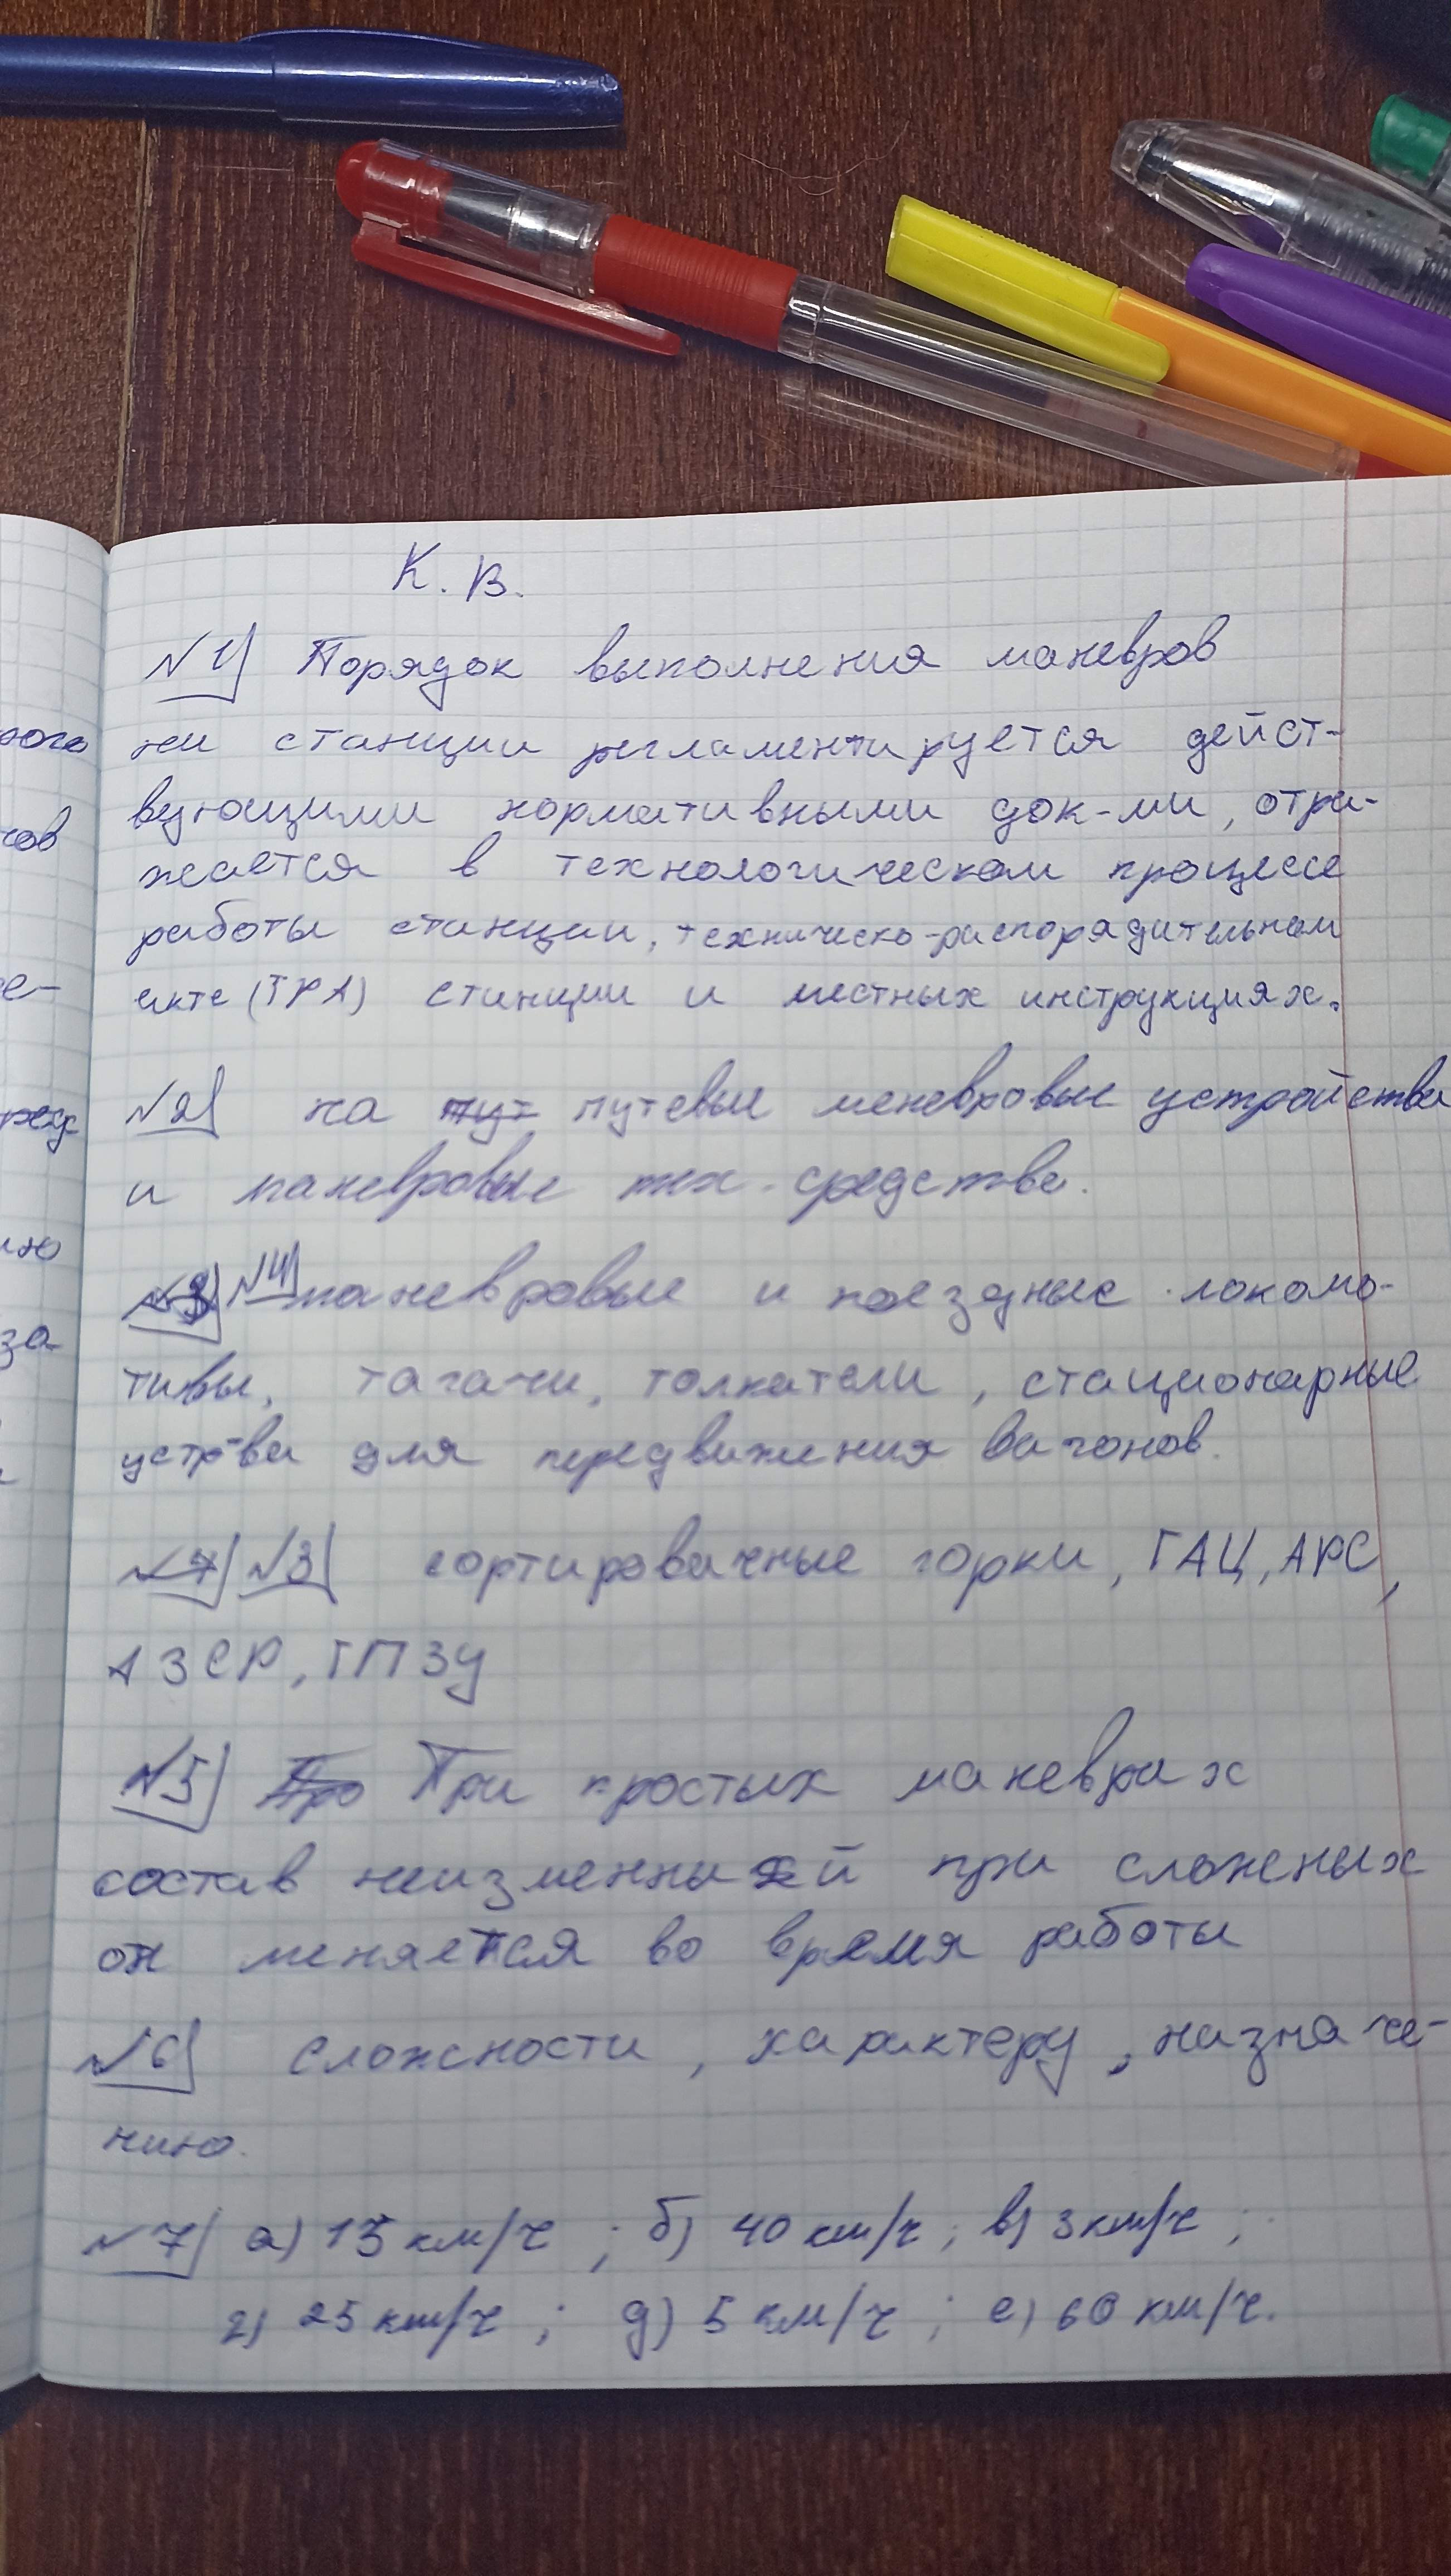 К. В.
№1 Порядок выполнения маневров
на станции регламентируется дейст-
вующими нормативными док-ми, отра-
жается в технологическом процессе
работы станции, техническо-распорядительном
акте (ТРА) станции и местных инструкциях.
№2 на пут путевые маневровые устройства
и маневровые тех. средства.
№3 №4 маневровые и поездные локомо-
тивы, тягачи, толкатели, стационарные
устр-ва для передвижения вагонов.
№7 №3 сортировочные горки, ГАЦ, АРС,
АЗСР, ГПЗУ
№5 Про При простых маневрах
состав неизменный при сложных
он меняется во время работы
№6 сложности, характеру, назначе-
нию.
№7 а) 15 км/ч ; б) 40 км/ч ; в) 3 км/ч ;
г) 25 км/ч ; д) 5 км/ч ; е) 60 км/ч.
рого
ею-
за-